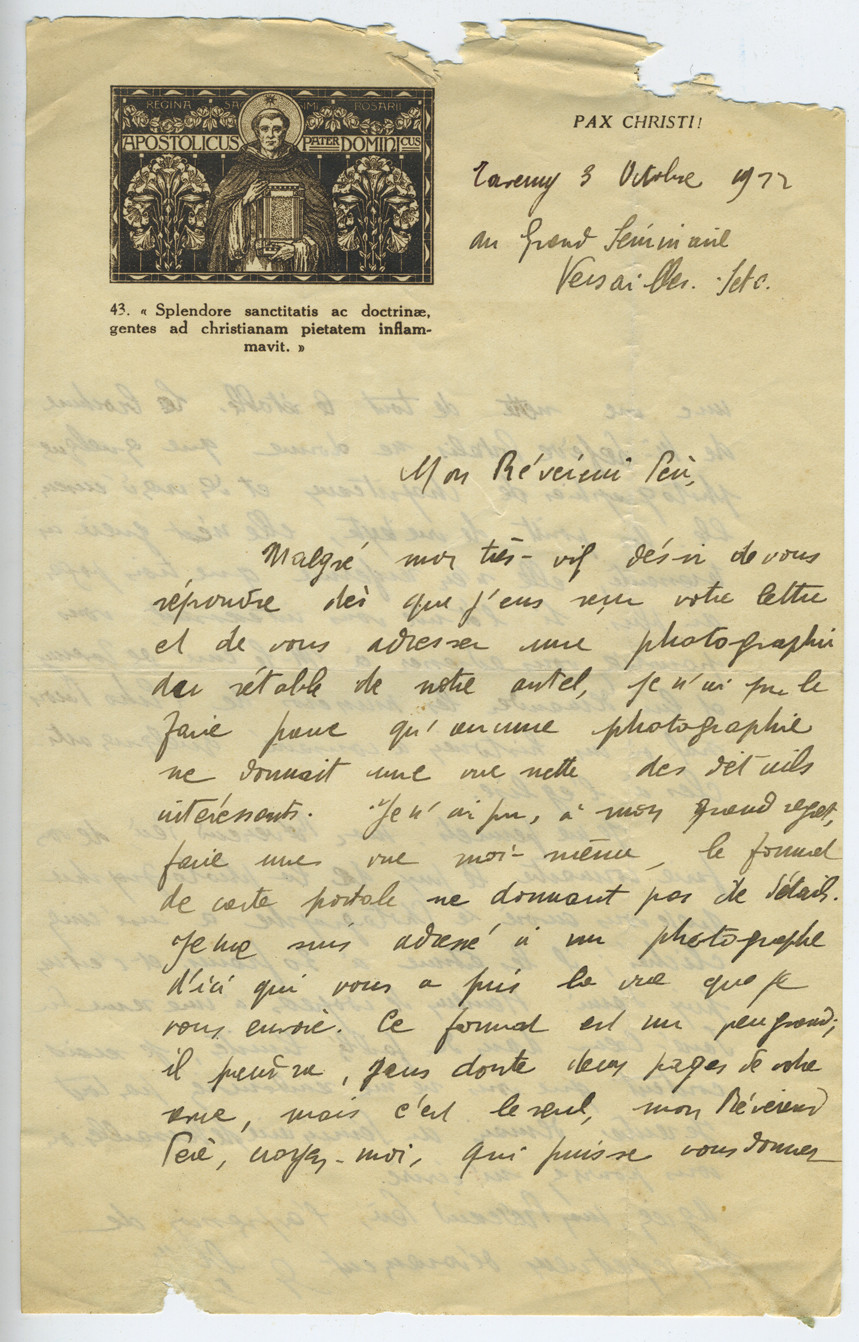 REGINA SA IMI ROSARII
APOSTOLICUS PATER DOMINICUS
43. « Splendore sanctitatis ac doctrinæ,
gentes ad christianam pietatem inflam-
mavit. »
PAX CHRISTI!
Taverny 3 Octobre 1922
au Grand Séminaire
Versailles. S et O.
Mon Révérend Père,
Malgré mon très-vif désir de vous
répondre dès que j'eus reçu votre lettre
et de vous adresser une photographie
du rétable de notre autel, je n'ai pu le
faire parce qu'aucune photographie
ne donnait une vue nette des détails
intéressants. Je n'ai pu, à mon grand regret,
faire une vue moi-même, le format
de carte postale ne donnant pas de détails.
Je me suis adressé à un photographe
d'ici qui vous a pris la vue que je
vous envoie. Ce format est un peu grand;
il prendra, sans doute deux pages de votre
revue, mais c'est le seul, mon Révérend
Père, croyez-moi, qui puisse vous donner